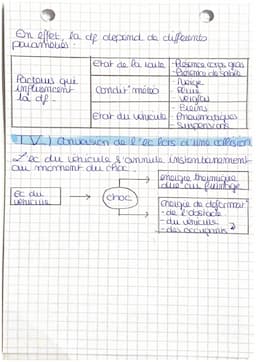 En effet, la df dépend de différents
paramètres :
Facteurs qui
influencent
la df.
Etat de la route
- Présence corps gras
- Présence de sable
Condit° météo
- Neige
- Pluie
- Verglas
Etat du véhicule
- Freins
- Pneumatiques
- Suspensions
IV) Conversion de l'ec lors d'une collision
L'ec du véhicule s'annule instantanément
au moment du choc.
Ec du
véhicule
choc
énergie thermique
due au freinage
énergie de déformat°
- de l'obstacle
- du véhicule
- des occupants